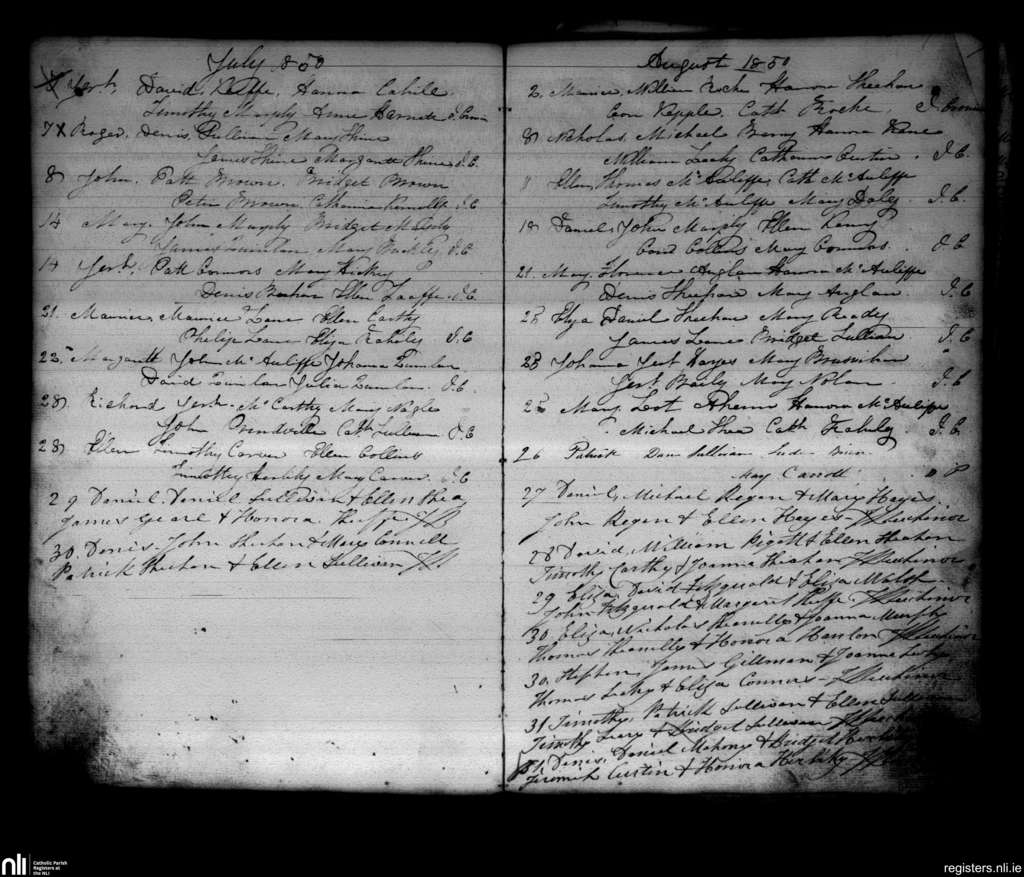 July 1850
Jerh. David Keffe, Hanna Cahile
Timothy Murphy Anne Barnette J. Cronin
7 X Roger, Denis Sullivan Mary Shine
James Shine Margarett Shine J. C.
8 John. Patt Brown. Bridget Brown
Peter Brown. Catherine J. C
14 Mary. John Murphy Bridget McAuly
James Quinlan, Mary Buckley J. C
14 Jerh. Patt Connors Mary Hickey
Denis Ellen Keeffe. J. C.
21. Maurice, Maurice Lane Ellen Carthy
Philip Lane Eliza J. C
22. Margarett John McAuliffe Johanna Quinlan
David Quinlan Julia Quinlan. J. C.
28 Richard Jerh. McCarthy Mary Nagle
John Prendville Cath Sullivan J. C
28 Ellen Timothy Carver Ellen Collins
Timothy Herlihy Mary Carver. J. C
29 Daniel. Daniel Sullivan & Ellen Shea
James & Honora Keeffe
30. Denis. John Sheehan & Mary Connell
Patrick Sheehan & Ellen Sullivan
August 1850
2. Maurice, William Roche Hanora Sheehan
Con Kepple, Cath Roche. J. Cronin
8 Nicholas. Michael Barry Hanora Kane
William Leahy Catherine Curtin. J. C.
Ellen, Thomas McAuliffe, Cath McAuliffe
Timothy McAuliffe Mary Daly. J. C.
18 Daniel, John Murphy Ellen
Cond Collins Mary Connors. J. C
21. Mary Florence Anglan Hanora McAuliffe
Denis Sheehan Mary Anglan. J. C
Eliza Daniel Sheehan Mary Ready
James Leane Bridget Sullivan. J. C
Johanna Jerh Hayes Mary Brosnihan
Jerh. Baily Mary Nolan. J. C
Mary, Ahern Hanora McAuliffe
Michael Shea Cath J. C.
26 Patrick Danl Sullivan
Mary Carroll
27 Daniel, Michael Regan & Mary Hayes.
John Regan & Ellen Hayes
28 David, William Pigott & Ellen Sheehan
Timothy Carthy & Joanna Sheehan
29 Eliza, David Fitzgerald & Eliza Walsh
John Fitzgerald & Margaret Keeffe
30 Eliza, Nicholas & Joanna Murphy
Thomas & Honora Hanlon
30, Stephen, James Gillman & Joanna Leahy
Thomas Leahy & Eliza Connors
31 Timothy, Patrick Sullivan & Ellen Sullivan
Timothy Leary & Bridget Sullivan
Denis, Daniel Mahony & Bridget
Jeremiah Curtin & Honora Herlihy
nli
Catholic Parish
Registers at
the NLI
registers.nli.ie